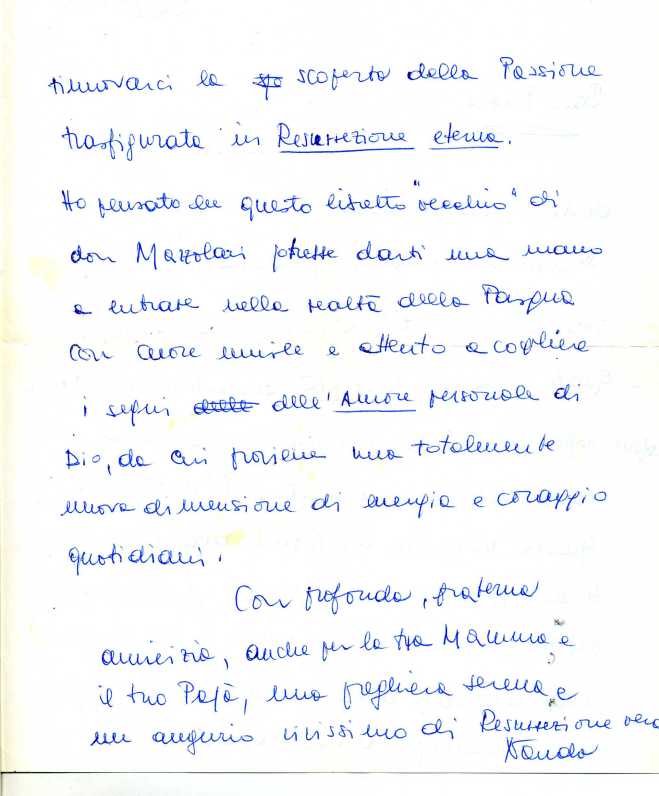 rinnovarci la scoperta della Passione
trasfigurata in Resurrezione eterna.
Ho pensato che questo libretto "vecchio" di
don Mazzolari potesse darti una mano
a entrare nella realtà della Pasqua
con cuore umile e attento a cogliere
i segni delle dell'Amore personale di
Dio, da cui proviene una totalmente
nuova dimensione di energia e coraggio
quotidiani.
Con profonda, fraterna
amicizia, anche per la tua Mamma e
il tuo Papà, una preghiera serena e
un augurio vivissimo di Resurrezione vera